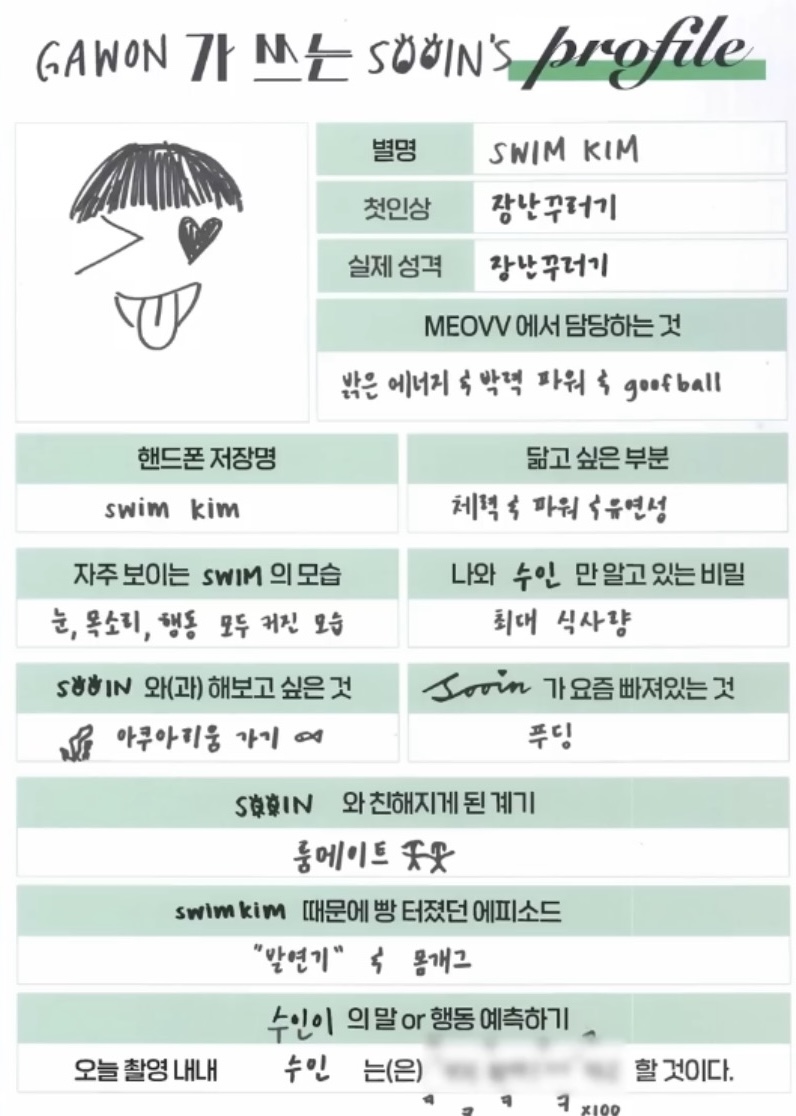 GAWON 가 쓰는 SOOIN'S profile
별명 SWIM KIM
첫인상 장난꾸러기
실제 성격 장난꾸러기
MEOVV 에서 담당하는 것
밝은 에너지 & 박력 파워 & goofball
핸드폰 저장명
swim kim
닮고 싶은 부분
체력 & 파워 & 유연성
자주 보이는 SWIM 의 모습
눈, 목소리, 행동 모두 커진 모습
나와 수인 만 알고 있는 비밀
최대 식사량
SOOIN 와(과) 해보고 싶은 것
아쿠아리움 가기
Sooin 가 요즘 빠져있는 것
푸딩
SOOIN 와 친해지게 된 계기
룸메이트
swimkim 때문에 빵 터졌던 에피소드
"발연기" & 몸개그
수인이 의 말 or 행동 예측하기
오늘 촬영 내내 수인 는(은) 할 것이다.
ㅋ ㅋ ㅋ ㅋ x100